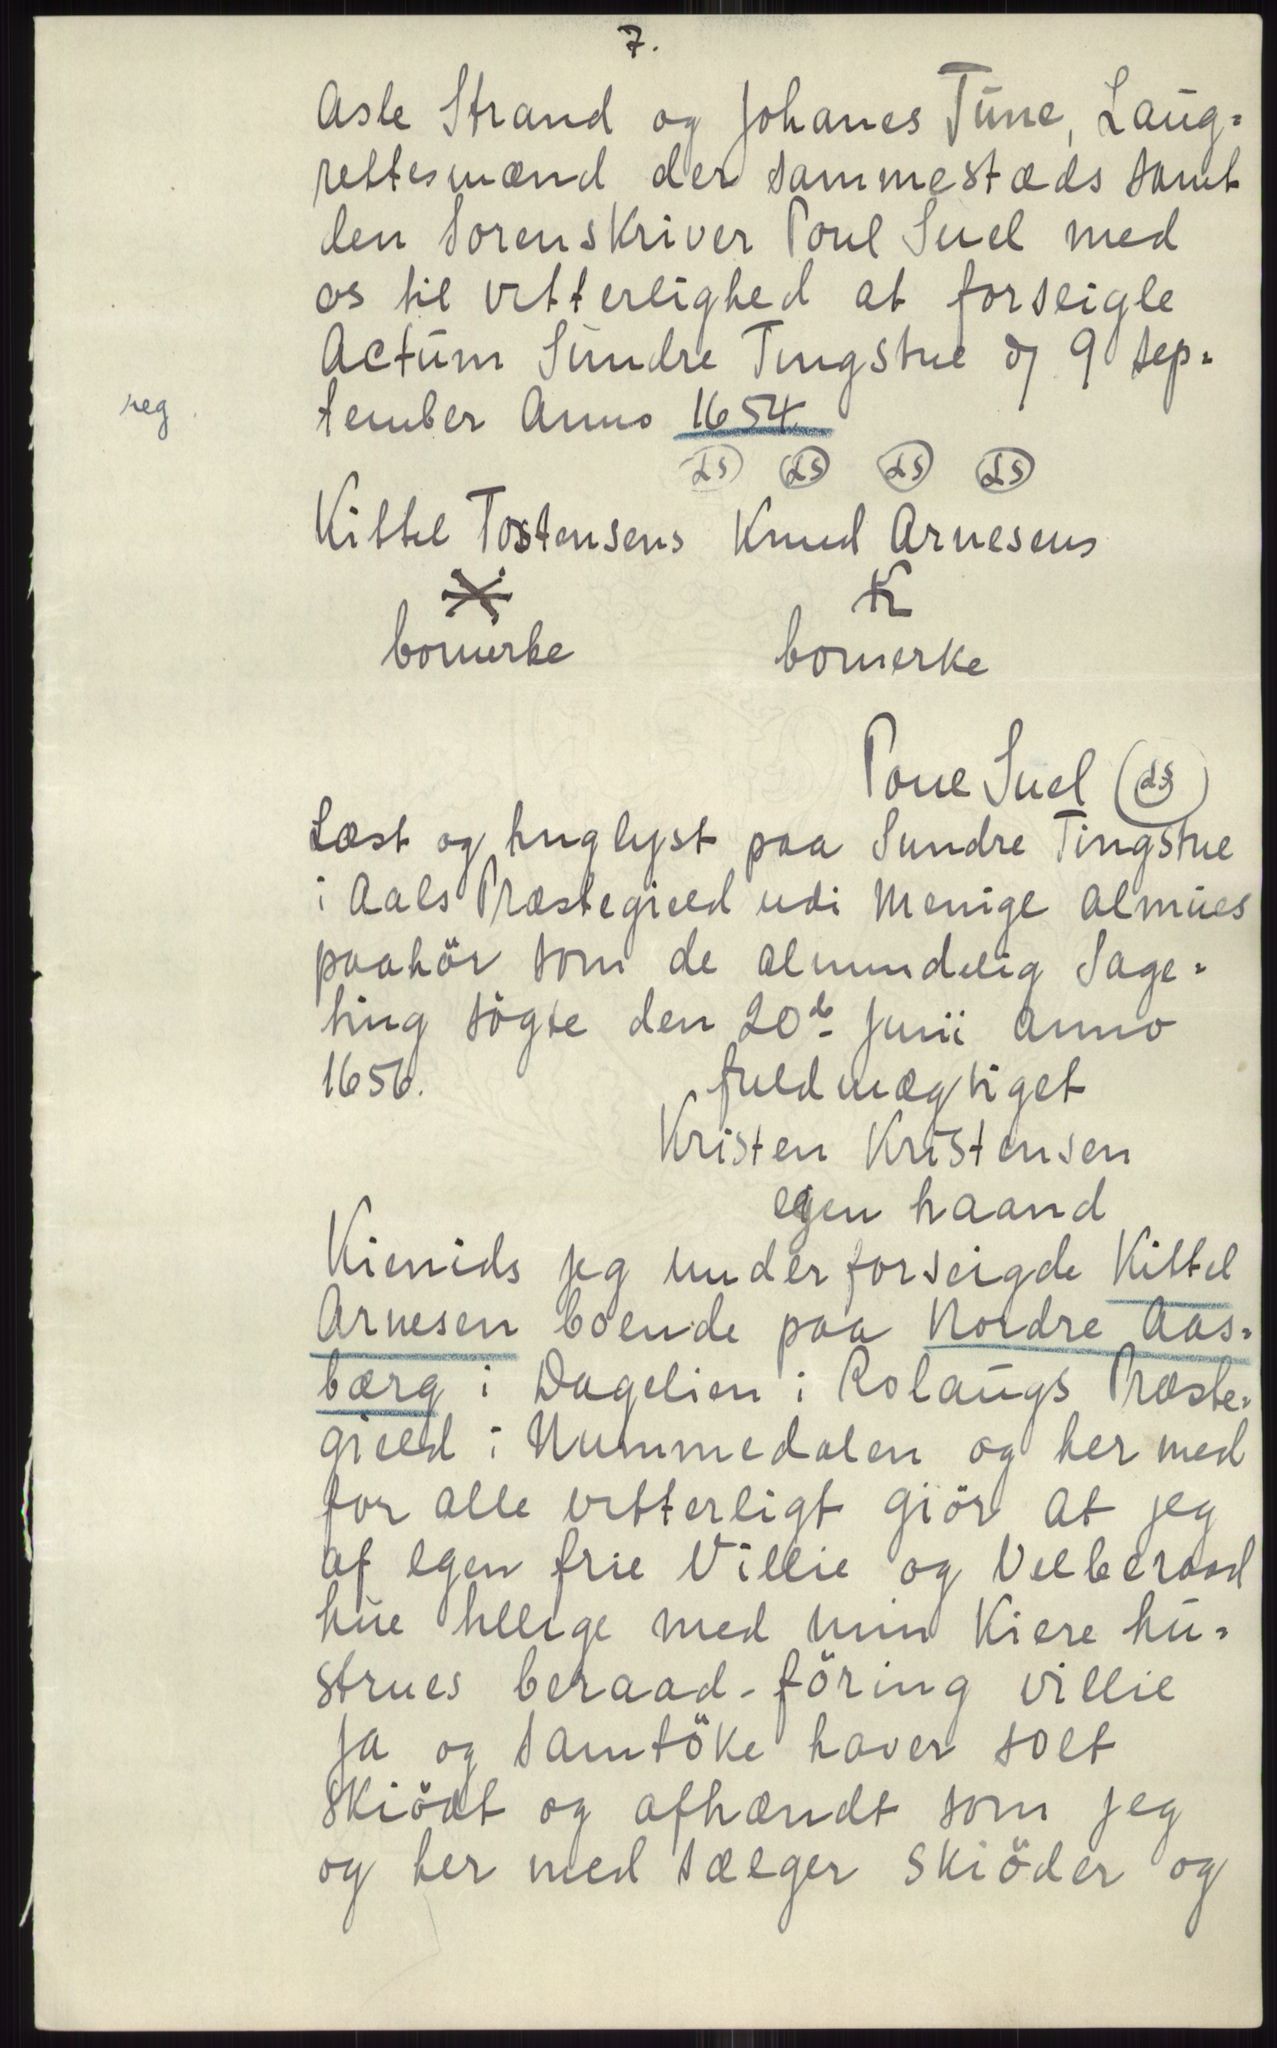 7.
Asle Strand og Johanes Tune, Laug=
rettesmænd der sammestæds samt
den Sorenskriver Poul Suel med
os til vitterlighed at forseigle
Actum Sundre Tingstue d 9 sep=
reg.
tember Anno 1654.
LS LS LS LS
Kittel Tostensens Knud Arnesens
K
bomerke bomerke
Poul Suel LS
Læst og tinglyst paa Sundre Tingstue
i Aals Præstegield udi Menige almues
paahör som de almindelig Sage=
ting sögte den 20de Junii anno
1656. fuldmægtiget
Kristen Kristensen
egen haand
Kienids jeg underforseigde Kittel
Arnesen boende paa Nordre Aas=
bærg i Dagelien i Rolaugs Præste=
gield i Nummedalen og her med
for alle vitterligt giör at jeg
af egen frie Villie og Velberaad
hue sllige med min Kiere hu=
strues beraad-föring villie
ja og samtöke haver solt
Skiödt og afhændt som jeg
og her med sælger skiöder og